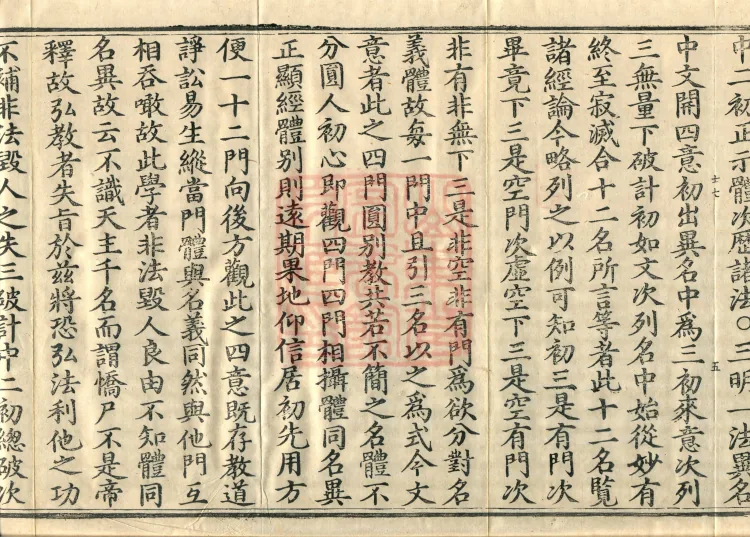 中二初正示體次歷諸法〇三明一法異名
中文開四意初出異名中爲三初來意次列
三無量下破計初如文次列名中始從妙有
終至寂滅合十二名所言等者此十二名覽
諸經論今略列之以例可知初三是有門次
畢竟下三是空門次虛空下三是空有門次
十七
五
非有非無下三是非空非有門爲欲分對名
義體故每一門中且引三名以之爲式今文
意者此之四門圓別教共若不簡之名體不
分圓人初心即觀四門四門相攝體同名異
正顯經體別則遠期果地仰信居初先用方
便一十二門向後方觀此之四意既存教道
諍訟易生縱當門體與名義同然與他門互
相吞噉故此學者非法毀人良由不知體同
名異故云不識天主千名而謂憍尸不是帝
釋故弘教者失旨於茲將恐弘法利他之功
不補非法毀人之失三破計中二初總破次